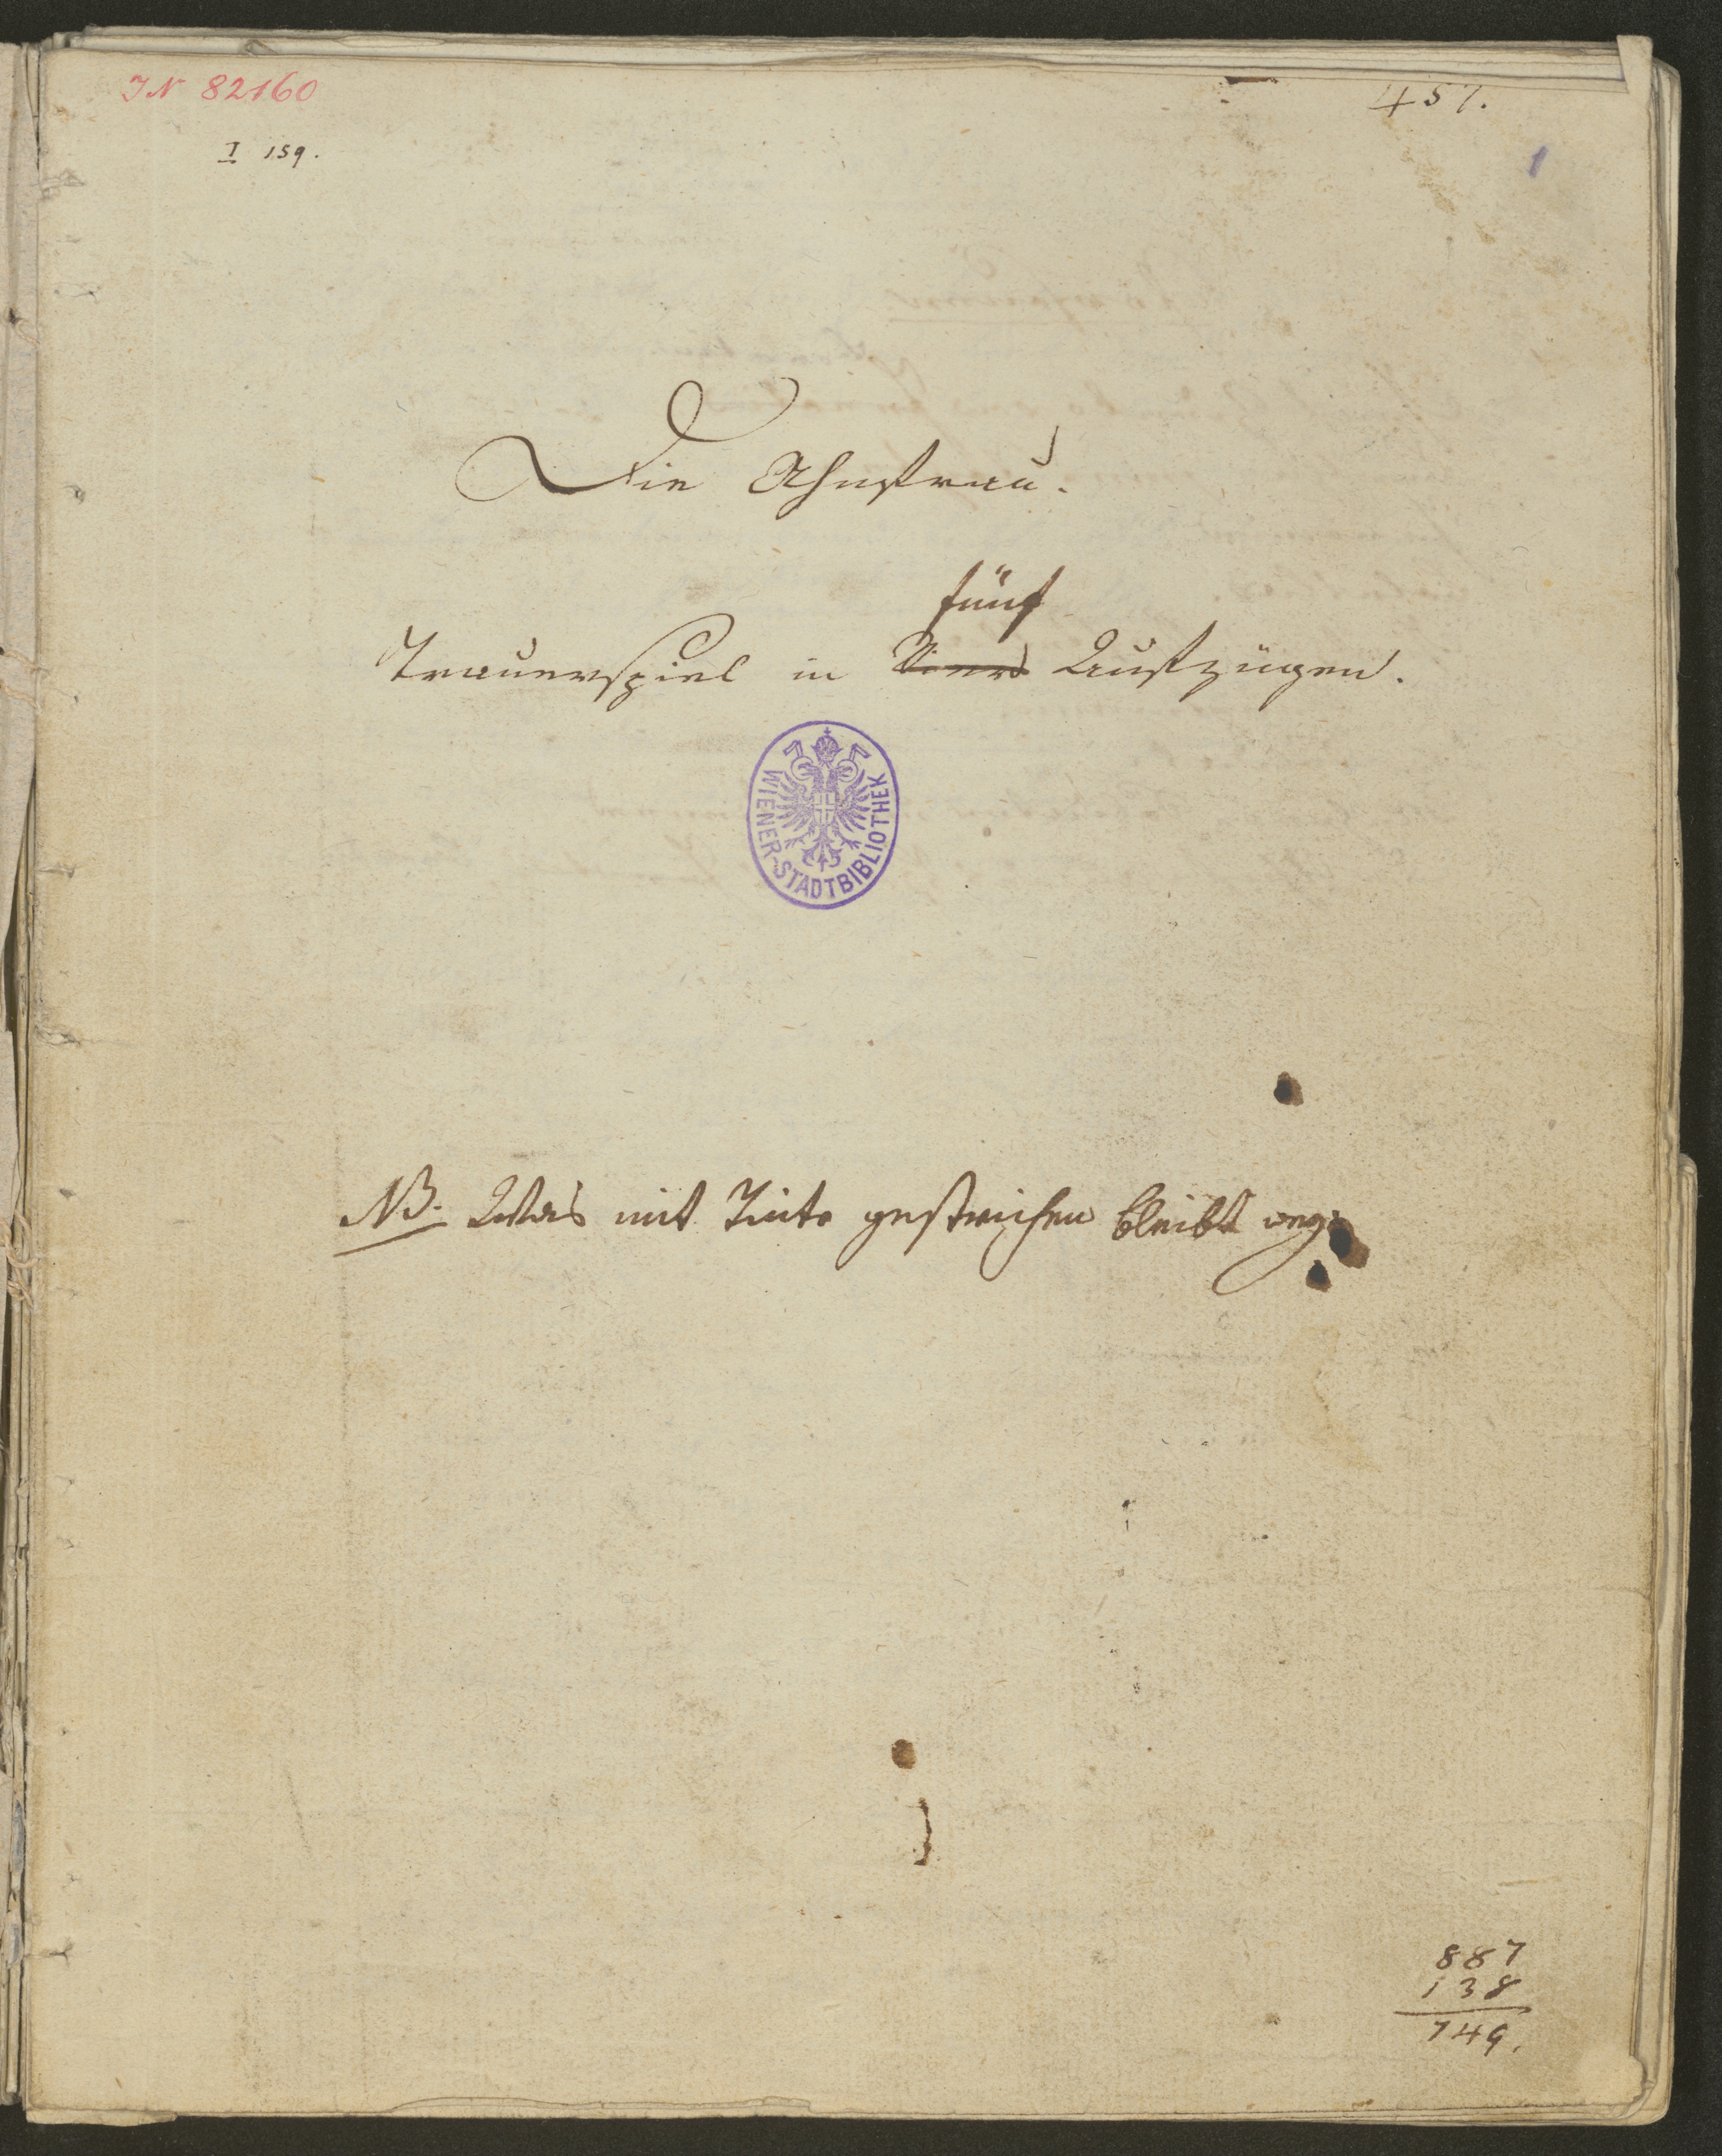 IN 82160
457.
I 159.
1
Die Ahnfrau.
fünf
Trauerspiel in Vier Aufzügen.
WIENER-STADTBIBLIOTHEK
NB. Was mit Tinte gestrichen bleibt weg.
887
138
749.